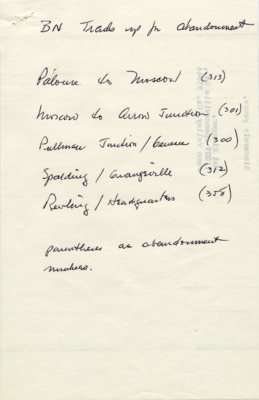 BN Tracks up for abandonment
Palouse to Moscow (313)
Moscow to Arrow Junction. (301)
Pullman Junction / Genesee (300)
Spalding / Grangeville (312)
Revling / Headquarters (358)
parentheses are abandonment
numbers.